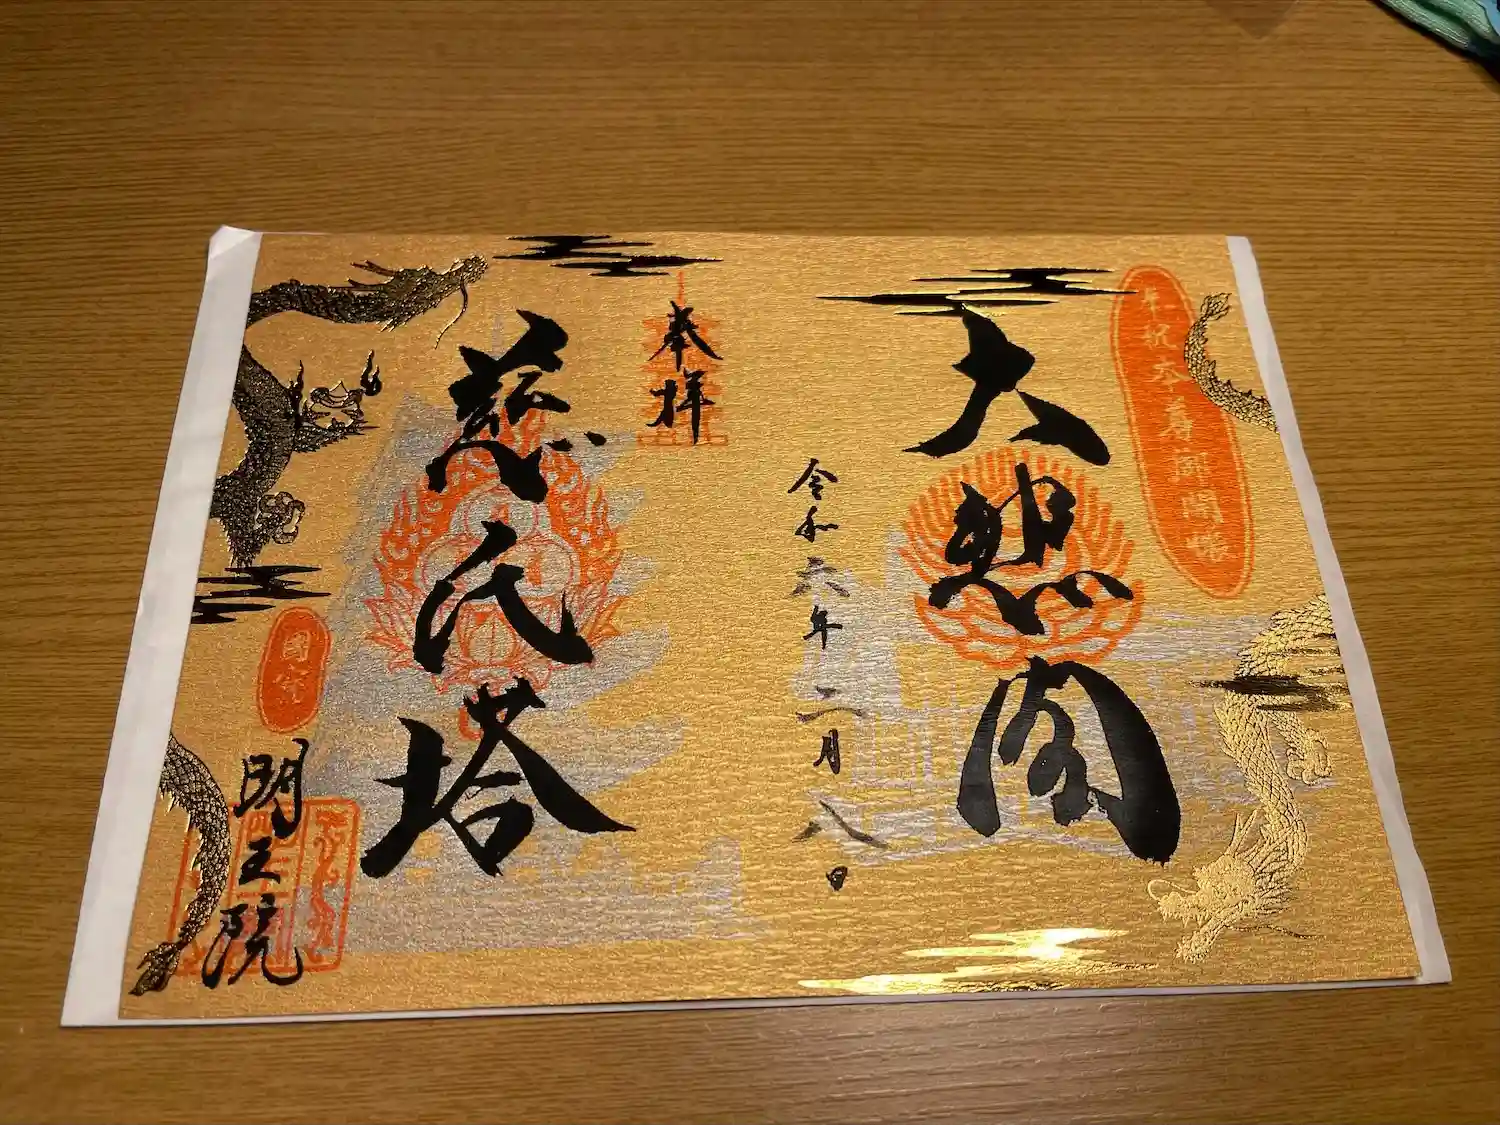 年祝本尊御開帳
大悲閣
令和六年二月八日
奉拝
慈氏塔
國寳
明王院